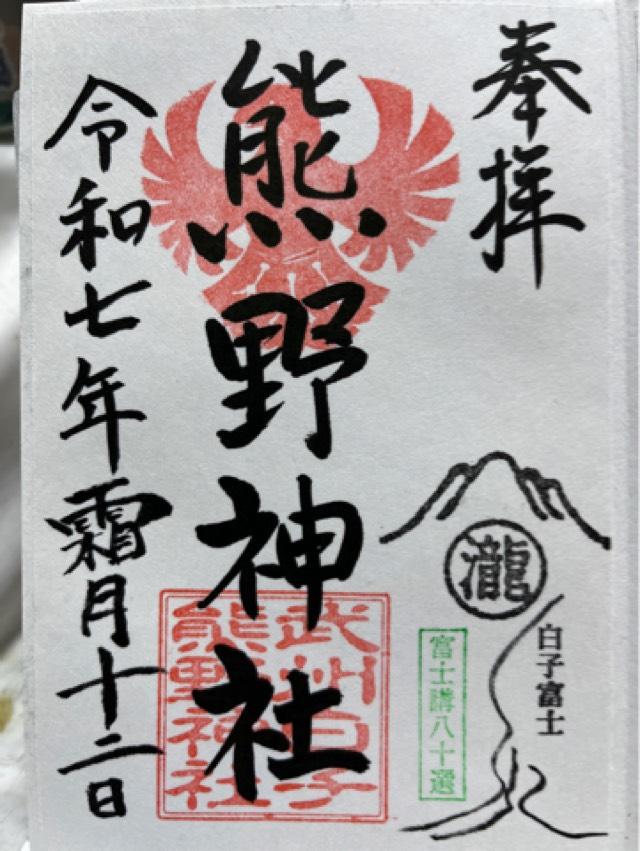 奉拝
熊野神社
武州白子
熊野神社
令和七年霜月十二日
瀧
白子富士
富士講八十選